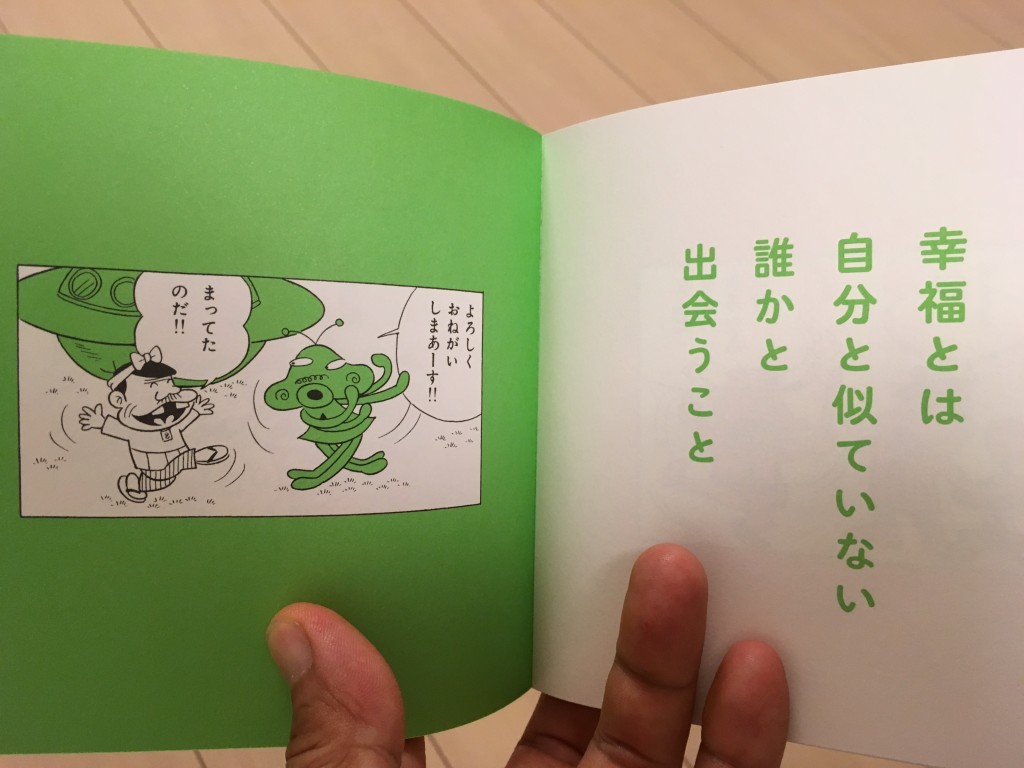 幸福とは
自分と似ていない
誰かと
出会うこと
よろしく
おねがい
しまあーす!!
まってた
のだ!!